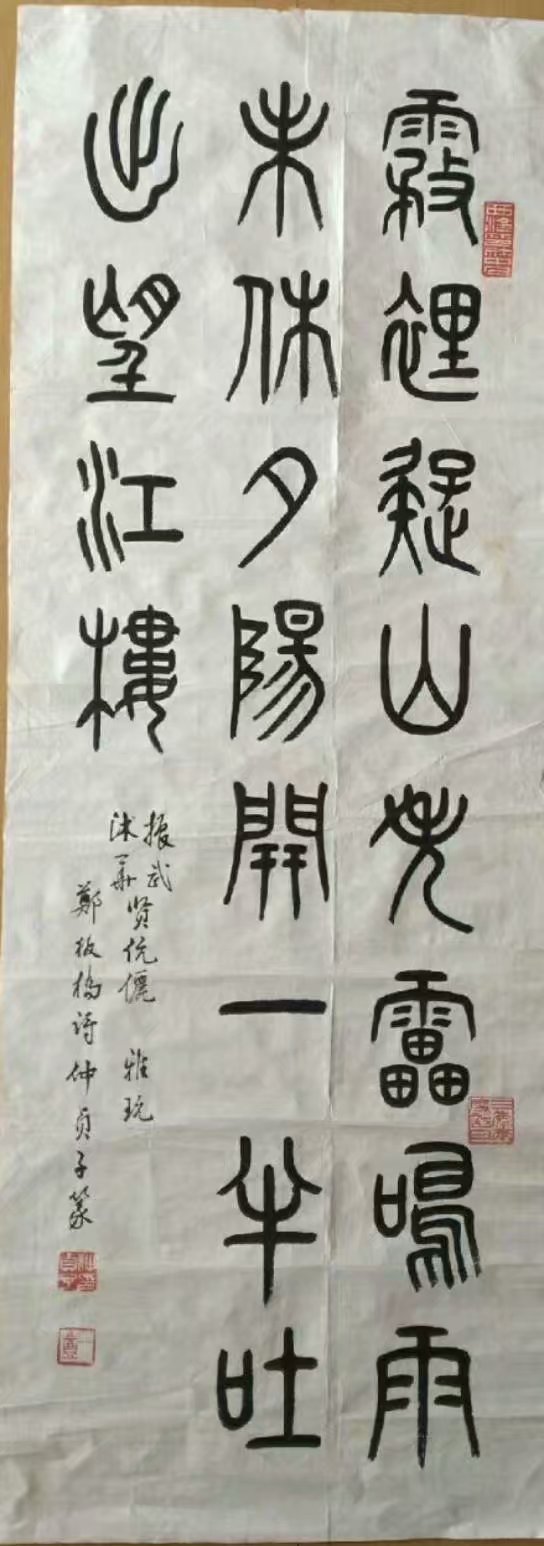 霧裡疑山失靁鳴雨
未休夕陽開一半吐
出望江樓
振武
沐華贤伉儷 雅玩
鄭板橋詩仲贞子篆